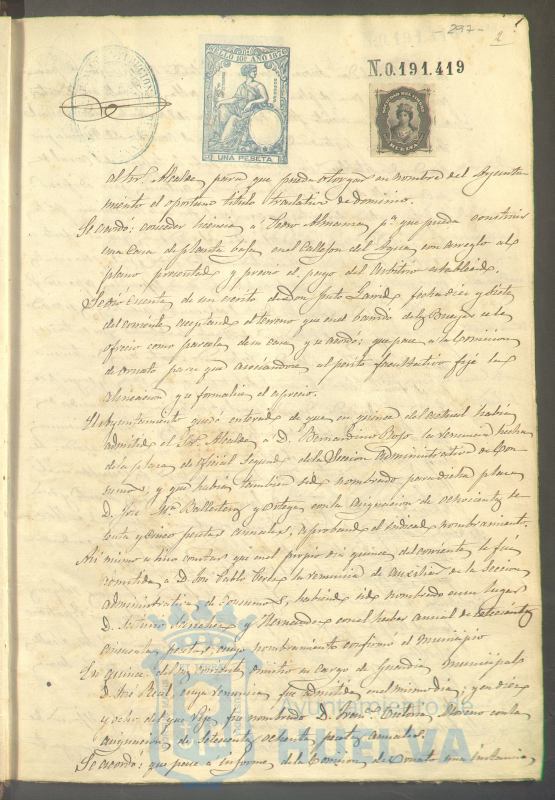 297-
2
SELLO 10º AÑO 1875
UNA PESETA
N.0.191.419
al Sor. Alcalde, para que pueda otorgar en nombre del Ayunta
miento el oportuno título traslativo de dominio.
Se acordó: conceder licencia á Pedro Almansa, pª que pueda construir
una casa de planta baja en el Callejon del Agua, con arreglo al
plano presentado y previo el pago del arbitrio establecido.
Se dió cuenta de un escrito de Don Justo fecha diez y siete
del corriente, aceptando el terreno que en el barrido de la se le
ofreció como parcela de su casa, y se acordó: que pase á la Comision
de ornato para que asociándose al perito facultativo fije la
alineacion y formalice el aprecio.
El Ayuntamiento quedó enterado de que en quince del actual habia
admitido el Sor. Alcalde, á D. Bernardino Rojo la renuncia hecha
de la plaza de Oficial Segundo de la Seccion Administrativa de Con-
sumos, y que habia tambien sido nombrado para dicha plaza
D. José Mª Ballesteros y Ortega con la asignacion de ochocientas se
senta y cinco pesetas anuales, aprobando el indicado nombramiento.
Asi mismo se hizo constar que en el propio dia quince del corriente le fué
admitida á D. José Pablo la renuncia de auxiliar de la Seccion
administrativa de Consumos, habiendo sido nombrado en su lugar
D. Arturo Sanchez y Hernandez con el haber anual de setecientas
cincuenta pesetas, cuyo nombramiento confirmó el Municipio
En quince del corriente dimitió su cargo de Guardia Municipal
D. José cuya renuncia fué admitida en el mismo dia; y en diez
y ocho del que rije fué nombrado D. Franº. Moreno con la
asignacion de setecientas ochenta pesetas anuales.
Se acordó: que pase á informe de la Comision de Ornato una instancia
Ayuntamiento de
HUELVA